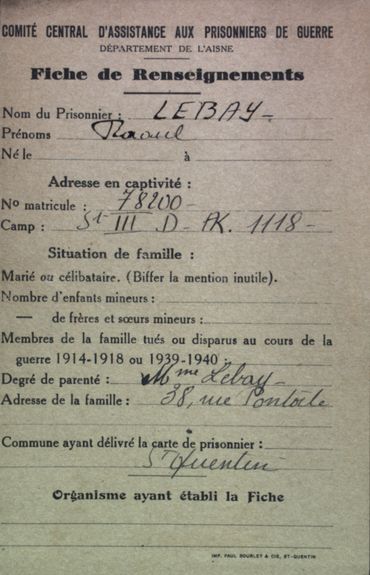 COMITÉ CENTRAL D'ASSISTANCE AUX PRISONNIERS DE GUERRE
DÉPARTEMENT DE L'AISNE
Fiche de Renseignements
Nom du Prisonnier : LEBAY -
Prénoms Raoul
Né le à
Adresse en captivité :
No matricule : 78200 -
Camp : St III D - AK. 1118 -
Situation de famille :
Marié ou célibataire. (Biffer la mention inutile).
Nombre d'enfants mineurs :
— de frères et sœurs mineurs :
Membres de la famille tués ou disparus au cours de la
guerre 1914-1918 ou 1939-1940 :
Degré de parenté : Mme Lebay -
Adresse de la famille : 38, rue Pontoile
Commune ayant délivré la carte de prisonnier :
St Quentin
Organisme ayant établi la Fiche
IMP. PAUL BOURLET & CIE, ST-QUENTIN